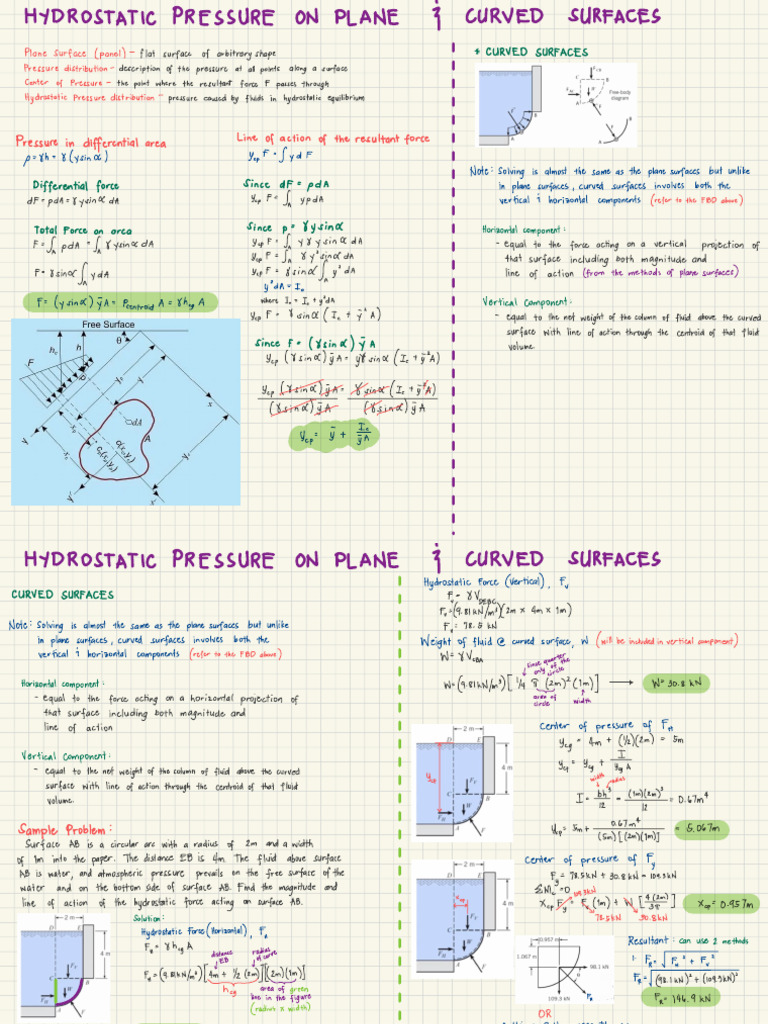 HYDROSTATIC PRESSURE ON PLANE & CURVED SURFACES
Plane Surface (panel) - flat surface of arbitrary shape
Pressure distribution - description of the pressure at all points along a surface
Center of Pressure - the point where the resultant force F passes through
Hydrostatic Pressure distribution - pressure caused by fluids in hydrostatic equilibrium
Pressure in differential area
p = γh = γ(y sin α)
Differential force
dF = pdA = γ y sin α dA
Total Force on area
F = ∫_A pdA = ∫_A γ y sin α dA
F = γ sin α ∫_A y dA
F = (γ sin α) ȳ A = P_centroid A = γ h_cg A
Free Surface
θ
h_c
h
F
p
y_p
y
x
dA
A
x_c
c(x_c, y_c)
y
y'
x'
Line of action of the resultant force
y_cp F = ∫ y dF
Since dF = pdA
y_cp F = ∫_A y p dA
Since p = γ y sin α
y_cp F = ∫_A y γ y sin α dA
y_cp F = ∫_A γ y² sin α dA
y_cp F = γ sin α ∫_A y² dA
y² dA = I_o
where I_o = I_c + ȳ² dA
y_cp F = γ sin α (I_c + ȳ² A)
Since F = (γ sin α) ȳ A
y_cp (γ sin α) ȳ A = γ sin α (I_c + ȳ² A)
y_cp (γ sin α) ȳ A / (γ sin α) ȳ A = γ sin α (I_c + ȳ² A) / (γ sin α) ȳ A
y_cp = ȳ + I_c / ȳ A
* CURVED SURFACES
Free-body
diagram
A
B
C
W
Note: Solving is almost the same as the plane surfaces but unlike
in plane surfaces, curved surfaces involves both the
vertical & horizontal components (refer to the FBD above)
Horizontal component:
- equal to the force acting on a vertical projection of
that surface including both magnitude and
line of action (from the methods of plane surfaces)
Vertical Component:
- equal to the net weight of the column of fluid above the curved
surface with line of action through the centroid of that fluid
volume.
HYDROSTATIC PRESSURE ON PLANE & CURVED SURFACES
CURVED SURFACES
Note: Solving is almost the same as the plane surfaces but unlike
in plane surfaces, curved surfaces involves both the
vertical & horizontal components (refer to the FBD above)
Horizontal component:
- equal to the force acting on a horizontal projection of
that surface including both magnitude and
line of action
Vertical Component:
- equal to the net weight of the column of fluid above the curved
surface with line of action through the centroid of that fluid
volume.
Sample Problem:
Surface AB is a circular arc with a radius of 2m and a width
of 1m into the paper. The distance EB is 4m. The fluid above surface
AB is water, and atmospheric pressure prevails on the free surface of the
water and on the bottom side of surface AB. Find the magnitude and
line of action of the hydrostatic force acting on surface AB.
2 m
D
E
4 m
F_V
C
B
F_H
W
A
F
Solution:
Hydrostatic force (Horizontal), F_H
F_H = γ h_cg A
distance EB
radius of curve
F_H = (9.81 kN/m³) [4m + 1/2 (2m)] [(2m)(1m)]
h_cg
area of green
line in the figure
(radius x width)
Hydrostatic Force (Vertical), F_v
F_v = γ V_DEBC
F_v = (9.81 kN/m³)(2m x 4m x 1m)
F_v = 78.5 kN
Weight of fluid @ curved surface, W (will be included in vertical component)
W = γ V_CBA
since quarter
only of the
circle
W = (9.81 kN/m³) [1/4 π (2m)² (1m)] → W = 30.8 kN
area of
circle
width
2 m
D
E
4 m
y_cg
F_V
C
B
W
A
F
Center of pressure of F_H
y_cg = 4m + (1/2)(2m) = 5m
y_cp = y_cg + I / y_cg A
width
radius
I = bh³/12 = (1m)(2m)³/12 = 0.67m⁴
y_cp = 5m + 0.67m⁴ / (5m)[(2m)(1m)] = 5.067m
2 m
D
E
4 m
x_cp
F_V
C
B
W
A
F
Center of pressure of F_y
F_y = 78.5 kN + 30.8 kN = 109.3 kN
ΣM_C = 0
109.3kN
x_cp F_y = F_v (1m) + W [4(2m)/3π]
78.5 kN
30.8 kN
x_cp = 0.957m
0.957 m
1.067 m
C
98.1 kN
109.3 kN
F_R
Resultant: can use 2 methods
1. F_R = √(F_H² + F_v²)
F_R = √((98.1 kN)² + (109.3 kN)²)
F_R = 146.9 kN
OR